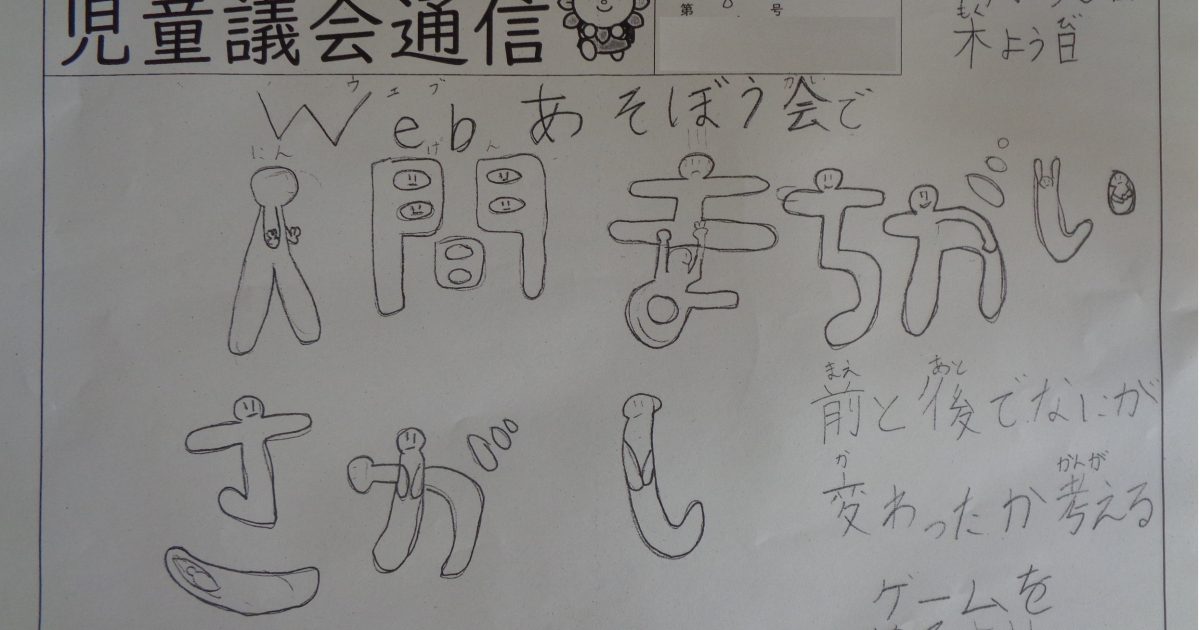 児童議会通信
第 号
もく び
木よう日
ウェブ かい
Webあそぼう会で
にん げん
人間まちがい
さがし
まえ あと
前と後でなにが
か かんが
変わったか考える
ゲームを